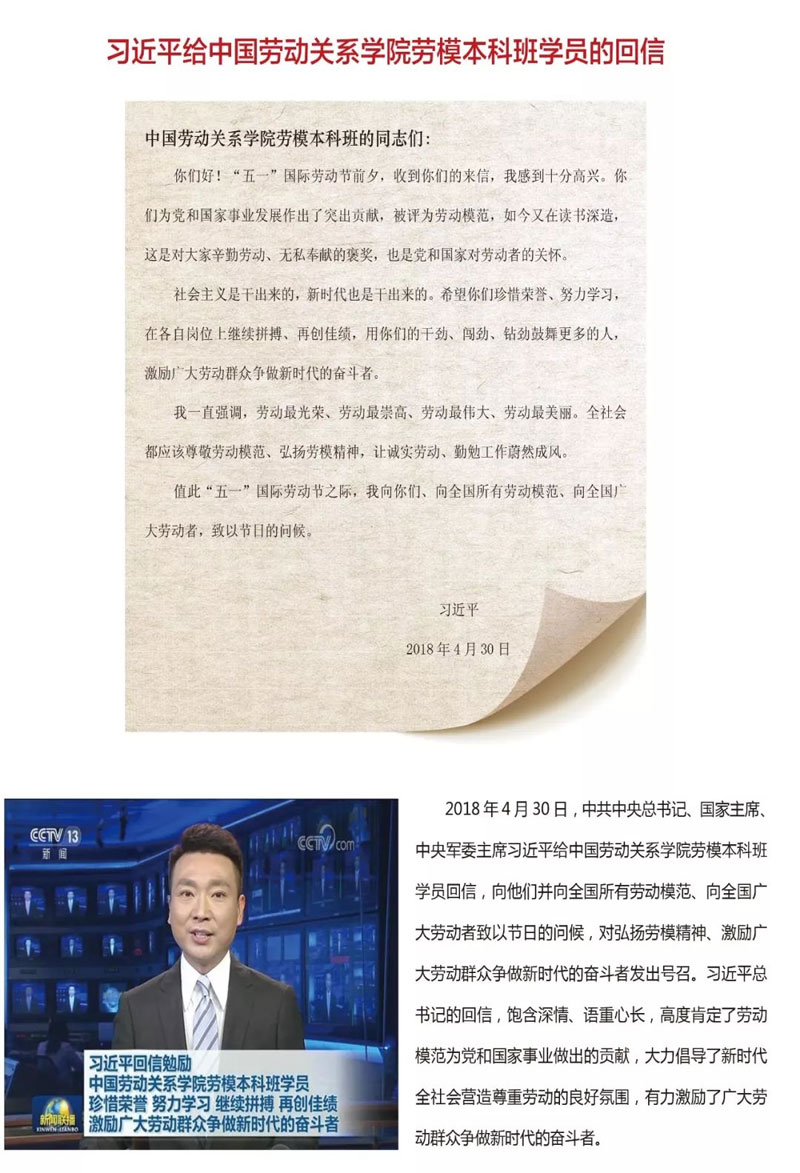 习近平给中国劳动关系学院劳模本科班学员的回信
中国劳动关系学院劳模本科班的同志们：
你们好！“五一”国际劳动节前夕，收到你们的来信，我感到十分高兴。你
们为党和国家事业发展作出了突出贡献，被评为劳动模范，如今又在读书深造，
这是对大家辛勤劳动、无私奉献的褒奖，也是党和国家对劳动者的关怀。
社会主义是干出来的，新时代也是干出来的。希望你们珍惜荣誉、努力学习，
在各自岗位上继续拼搏、再创佳绩，用你们的干劲、闯劲、钻劲鼓舞更多的人，
激励广大劳动群众争做新时代的奋斗者。
我一直强调，劳动最光荣、劳动最崇高、劳动最伟大、劳动最美丽。全社会
都应该尊敬劳动模范、弘扬劳模精神，让诚实劳动、勤勉工作蔚然成风。
值此“五一”国际劳动节之际，我向你们、向全国所有劳动模范、向全国广
大劳动者，致以节日的问候。
习近平
2018年4月30日
CCTV 13
新闻
CCTV.com
习近平回信勉励
中国劳动关系学院劳模本科班学员
珍惜荣誉 努力学习 继续拼搏 再创佳绩
激励广大劳动群众争做新时代的奋斗者
新闻联播
XINWEN LIANBO
2018年4月30日，中共中央总书记、国家主席、
中央军委主席习近平给中国劳动关系学院劳模本科班
学员回信，向他们并向全国所有劳动模范、向全国广
大劳动者致以节日的问候，对弘扬劳模精神、激励广
大劳动群众争做新时代的奋斗者发出号召。习近平总
书记的回信，饱含深情、语重心长，高度肯定了劳动
模范为党和国家事业做出的贡献，大力倡导了新时代
全社会营造尊重劳动的良好氛围，有力激励了广大劳
动群众争做新时代的奋斗者。